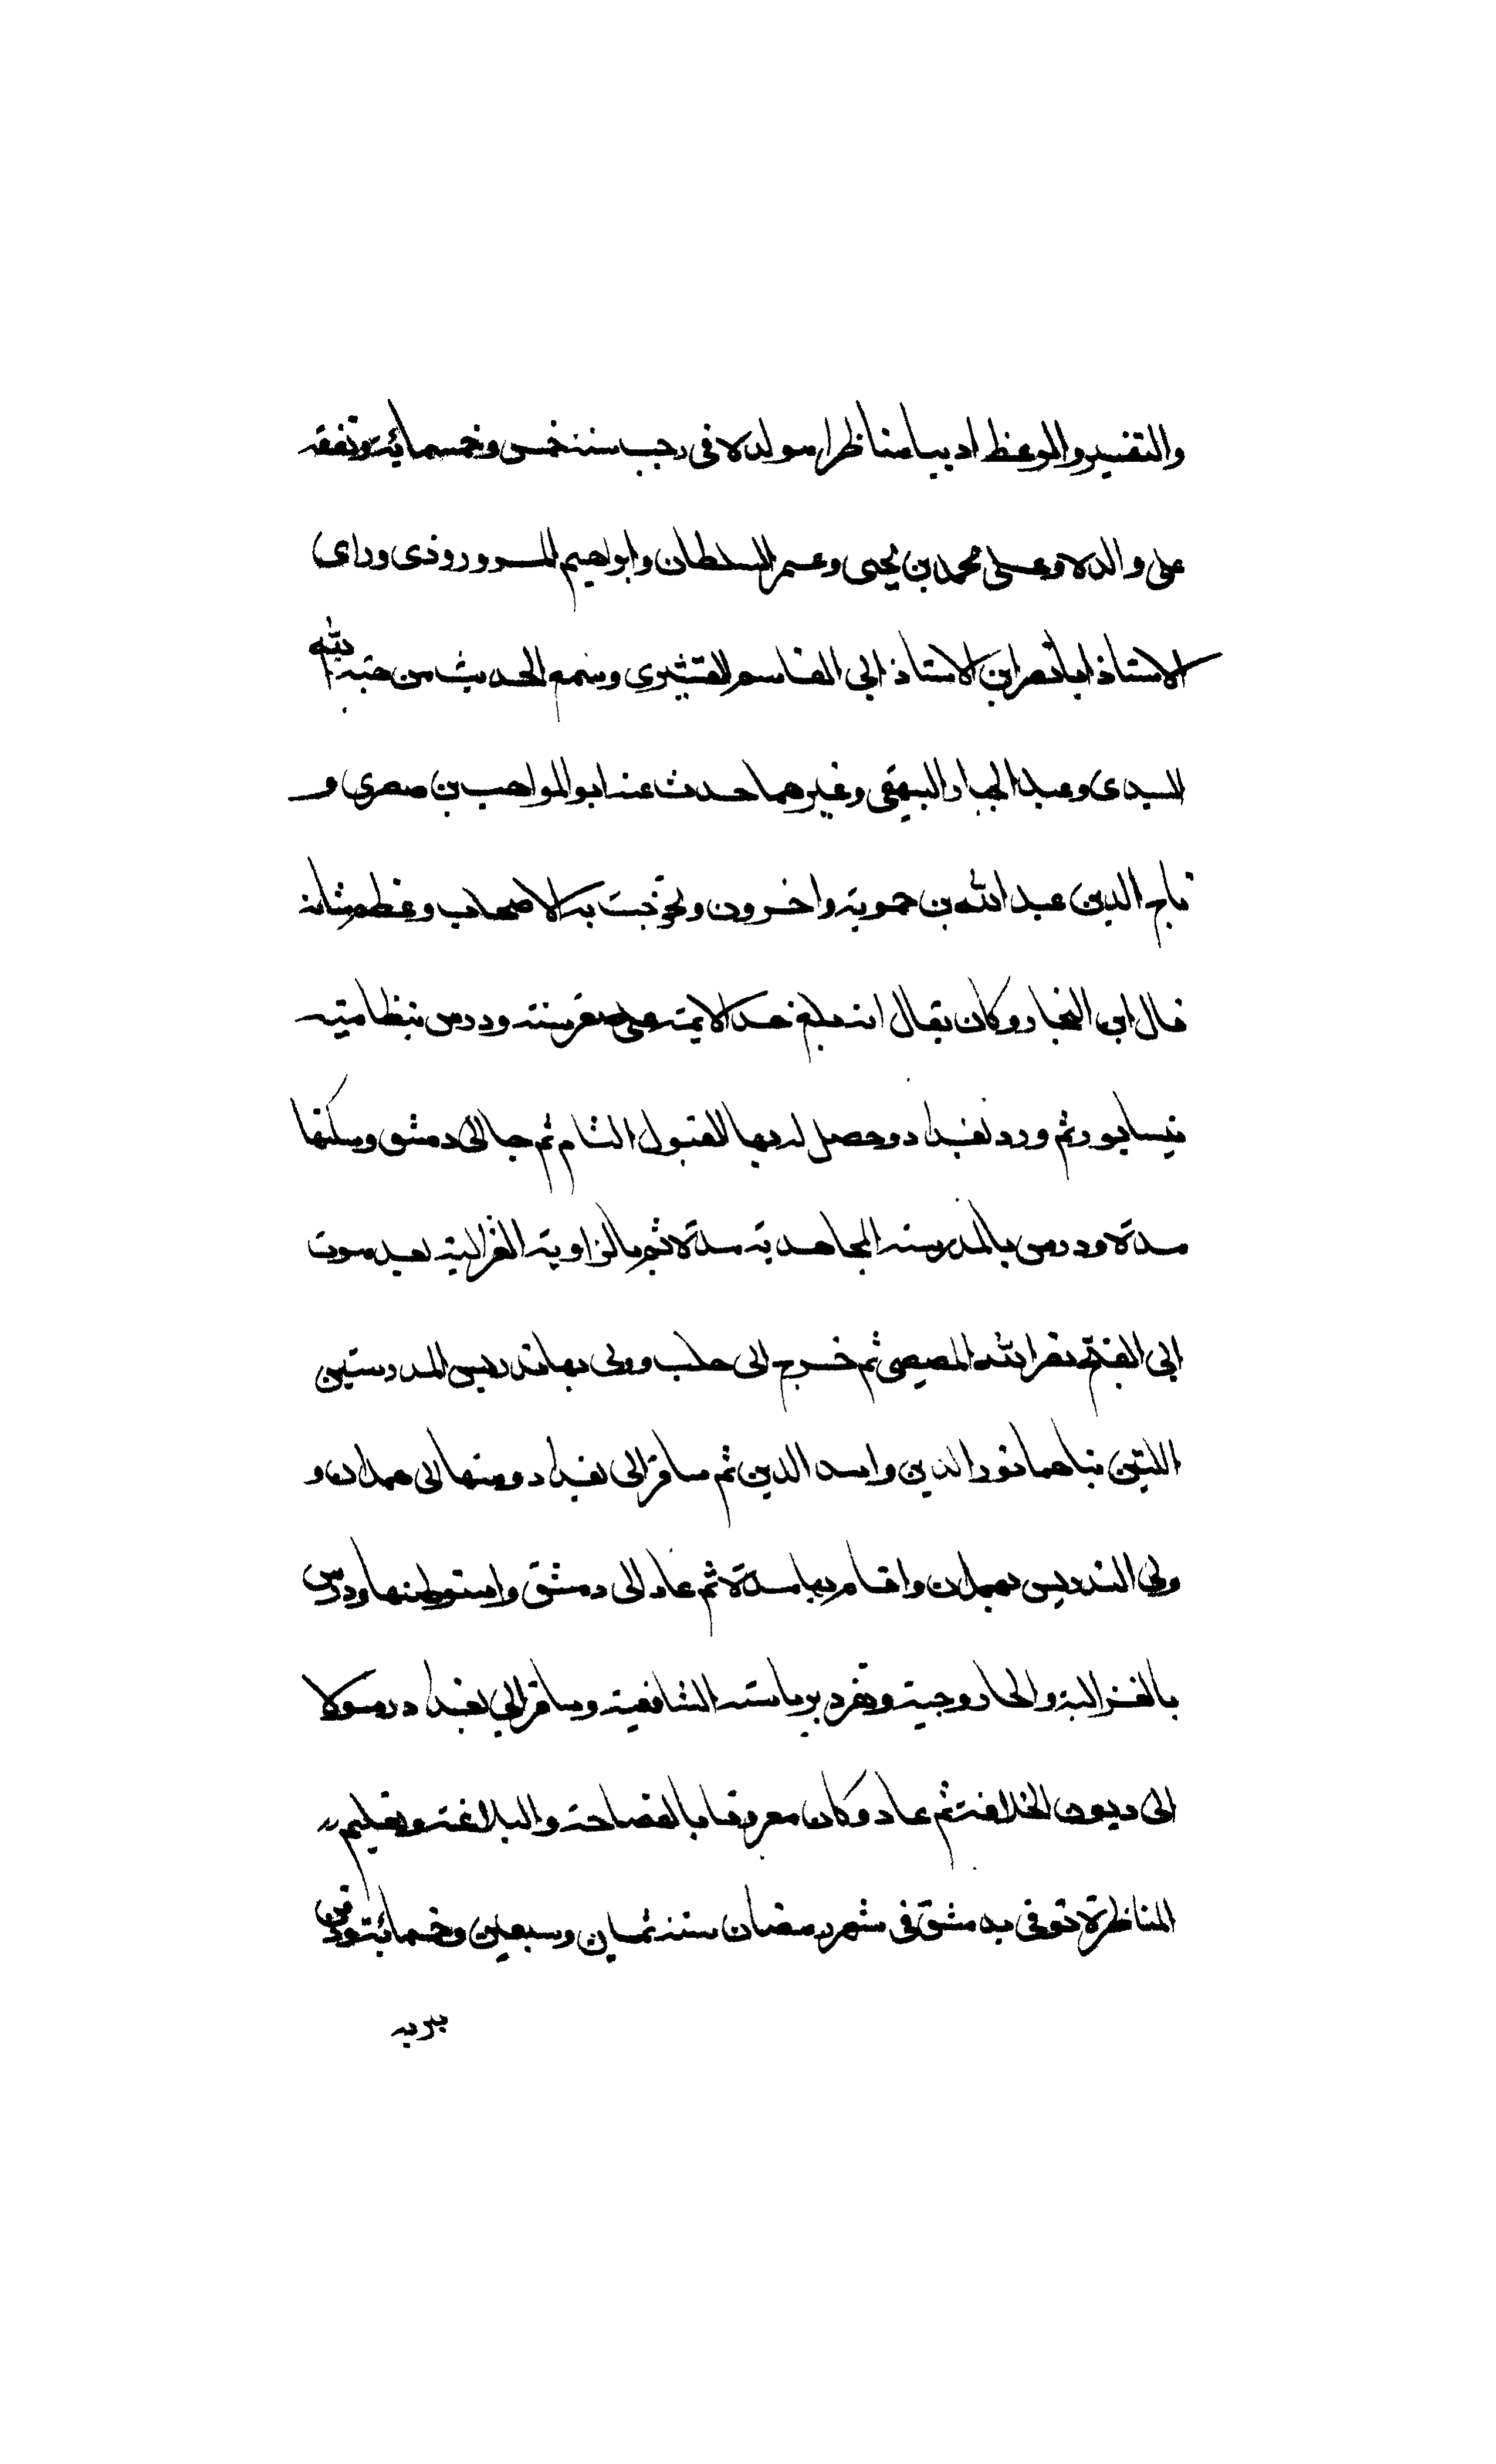 والتفسير والوعظ اديبا مناظرا مولده فى رجب سنة خمس وخمسمائة وتفقه
على والده وعلى محمد بن يحيى وعمر السلطان وابراهيم المروروذى وراى
الاستاذ ابا نصر ابن الاستاذ ابى القاسم القشيرى وسمع الحديث من هبة الله
السيدى وعبد الجبار البيهقى وغيرهما حدث عنه ابو المواهب بن صصرى و
تاج الدين عبد الله بن حموية واخرون وتخرجت به الاصحاب وعظم شانه
قال ابن النجار وكان يقال انه بلغ حد الايمة على صغر سنه ودرس بنظامية
نيسابور ثم ورد بغداد وحصل له بها القبول التام ثم جا الى دمشق وسكنها
مدة ودرس بالمدرسة المجاهدية مدة ثم بالزاوية الغزالية بعد موت
ابى الفتح نصر الله المصيصى ثم خرج الى حلب وولى بها تدريس المدرستين
اللتين بناهما نور الدين واسد الدين ثم سافر الى بغداد ومنها الى همدان و
ولى التدريس بهمدان واقام بها مدة ثم عاد الى دمشق واستوطنها ودرس
بالغزالية والحاروجية وتفرد برياسة الشافعية وسافر الى بغداد رسولا
الى ديون الخلافة ثم عاد وكان معروفا بالفصاحة والبلاغة وتعليم
المناظرة توفى بدمشق فى شهر رمضان سنة ثمان وسبعين وخمسمائة ودفن
بتربه